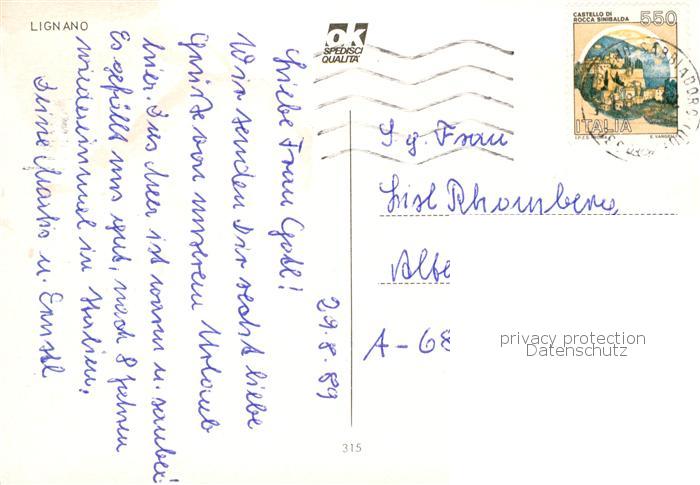 LIGNANO
ok
SPEDISCI
QUALITA'
CASTELLO DI
ROCCA SINIBALDA
550
ITALIA
29.8.89
Liebe Frau Gotl!
Wir senden Dir recht liebe
Grüße von unserem Urlaub
hier. Das Meer ist warm u. sauber!
Es gefällt uns gut, nach 8 Jahren
wiedereinmal in Italien.
Deine Martin u.
S. g. Frau
Lisl Rhomberg
Albe
A-68
privacy protection
Datenschutz
315